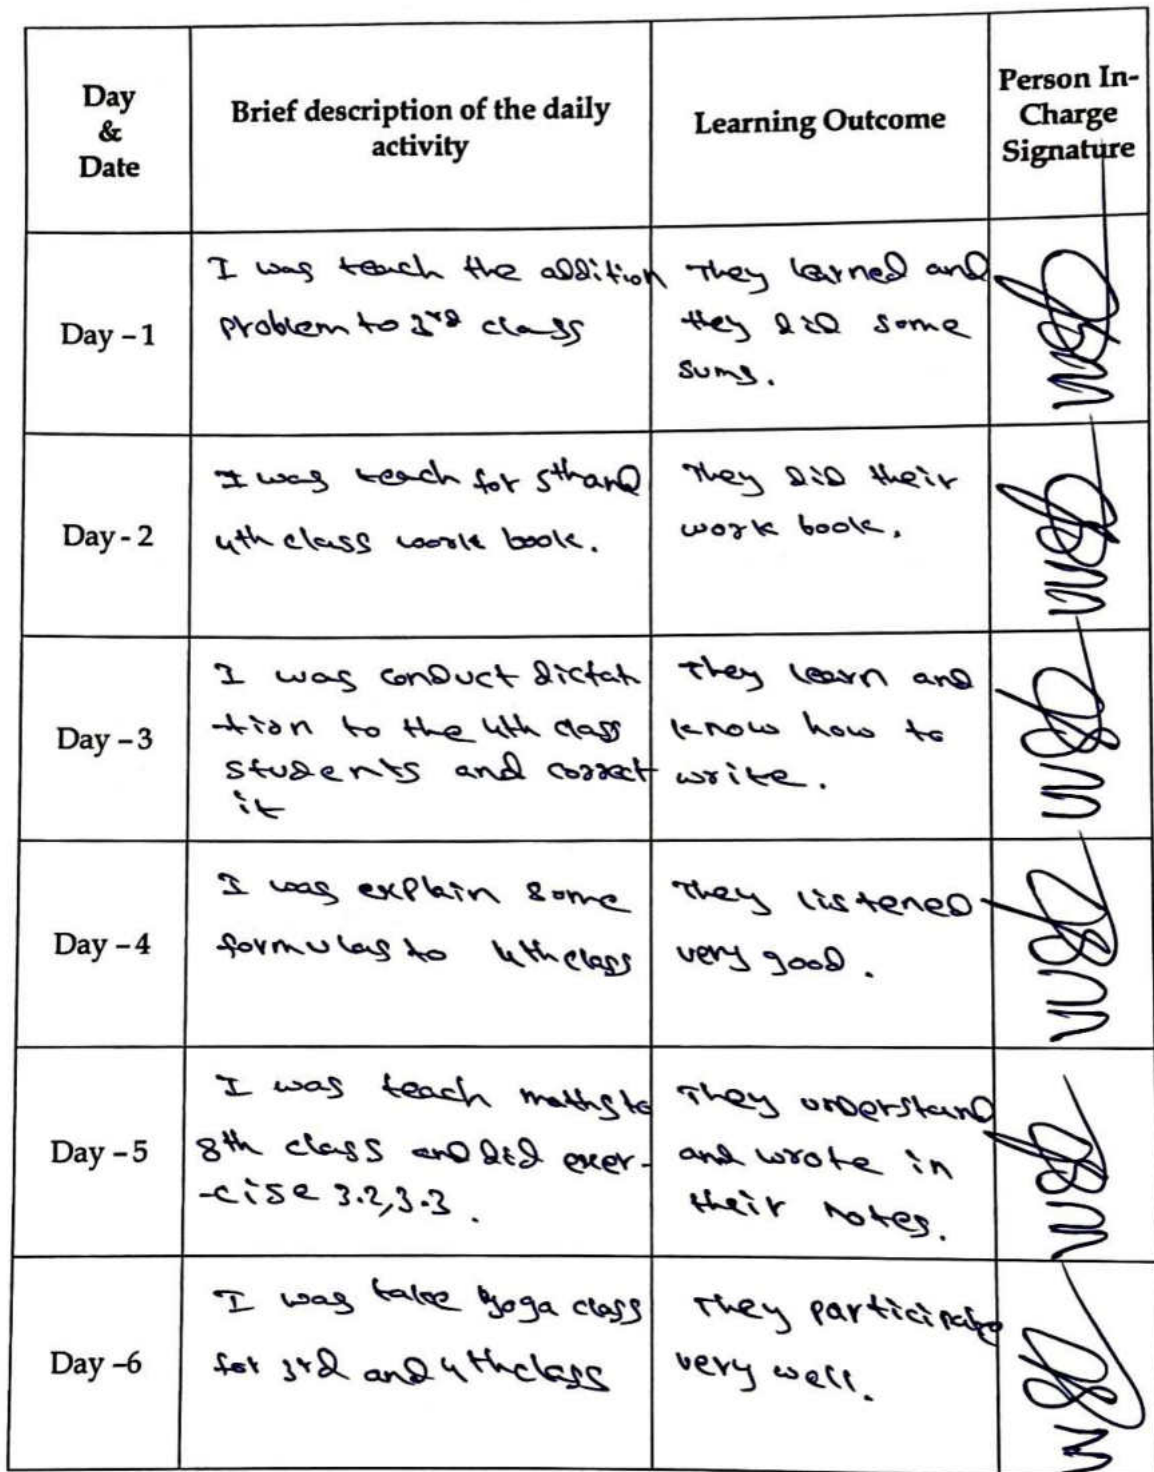 Day
&
Date
Brief description of the daily
activity
Learning Outcome
Person In-
Charge
Signature
Day - 1
I was teach the addition
problem to 3rd class
They learned and
they did some
sums.
Day - 2
I was teach for 5th and
4th class work book.
They did their
work book.
Day - 3
I was conduct dictat
-tion to the 4th class
students and correct
it
They learn and
know how to
write.
Day - 4
I was explain some
formulas to 4th class
They listened
very good.
Day - 5
I was teach maths to
8th class and did exer-
-cise 3.2, 3.3.
They understand
and wrote in
their notes.
Day -6
I was take yoga class
for 3rd and 4th class
They participate
very well.